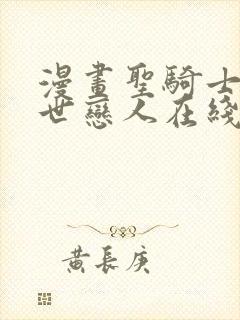 漫畫聖騎士
世戀人在綫
黃長庚